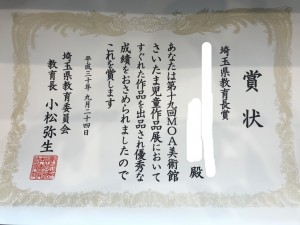 賞状
埼玉県教育長賞
殿
あなたは第十九回MOA美術館
さいたま児童作品展において
すぐれた作品を出品され優秀な
成績をおさめられましたので
これを賞します
平成三十年九月二十四日
埼玉県教育委員会
教育長 小松弥生